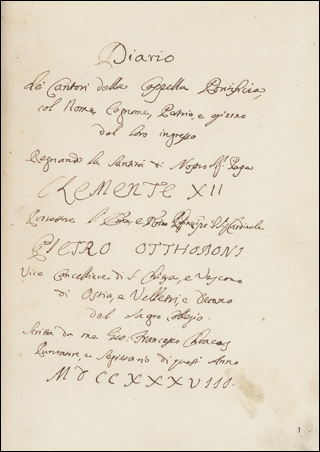 Diario
de Cantori della Cappella Pontificia,
col Nome, Cognome, Patria, e giorno
del loro ingresso
Regnando la Santità di Nostro Sig.r Papa
CLEMENTE XII
Protettore l' e Principe Cardinale
PIETRO OTTHOBONI
Vice Cancelliere di S. Chiesa, e Vescovo
di Ostia, e Velletri, e Decano
del Sagro Collegio.
Scritto da me Gio: Francesco
Puntatore, e Segretario di quest' Anno
MDCCXXXVIII.
1